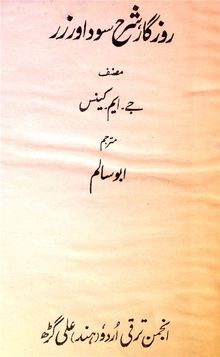 روزگار، شرح سود اور زر
مصنف
جے۔ ایم۔ کینس
مترجم
ابو سالم
انجمن ترقی اُردو (ہند) علی گڑھ